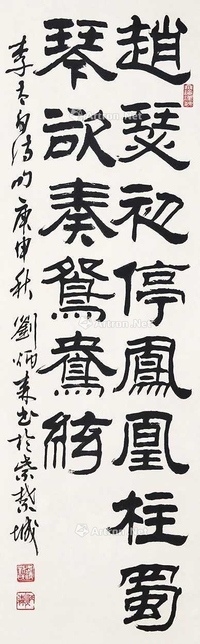 趙瑟初停鳳凰柱蜀
琴欲奏鴛鴦絃
李太白詩句庚申秋劉炳森書於紫禁城